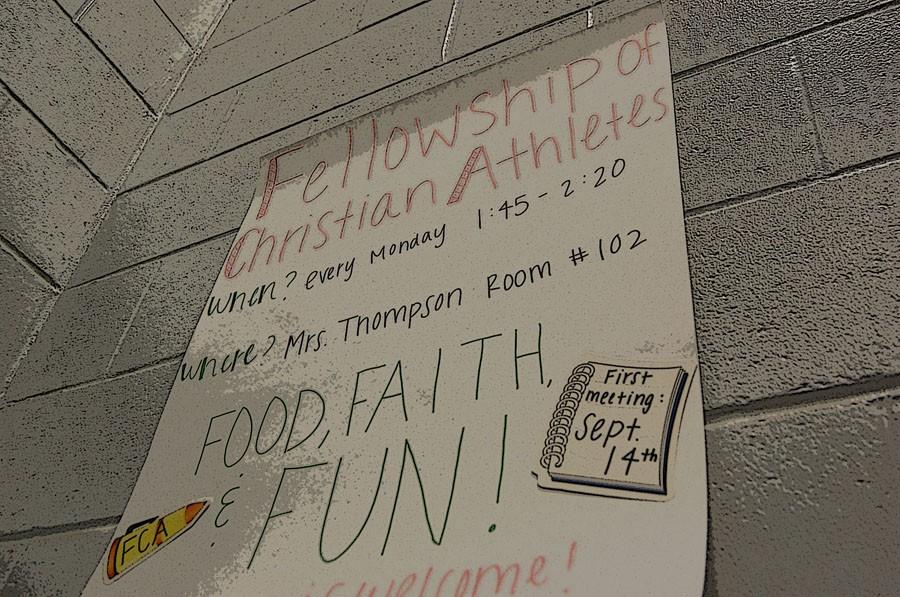 Fellowship of
Christian Athletes
When? every Monday 1:45 - 2:20
Where? Mrs. Thompson Room #102
FOOD, FAITH,
& FUN!
First
meeting:
Sept.
14th
FCA
is welcome!